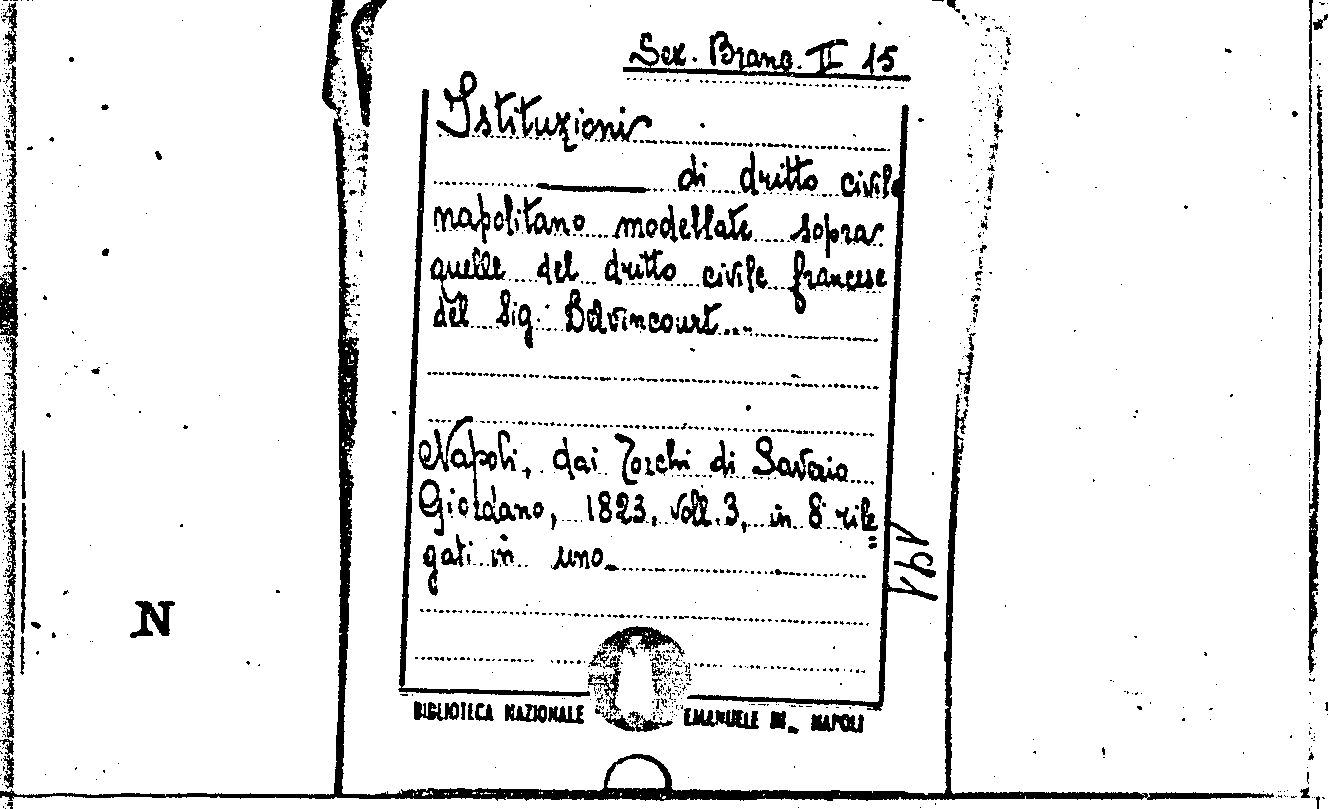 Sez. Branc. II 15
Istituzioni
di dritto civile
napolitano modellate sopra
quelle del dritto civile francese
del Sig. Delvincourt...
Napoli, dai Torchi di Saverio
Giordano, 1823, voll. 3, in 8° rile
gati in uno
N
BIBLIOTECA NAZIONALE EMANUELE III NAPOLI